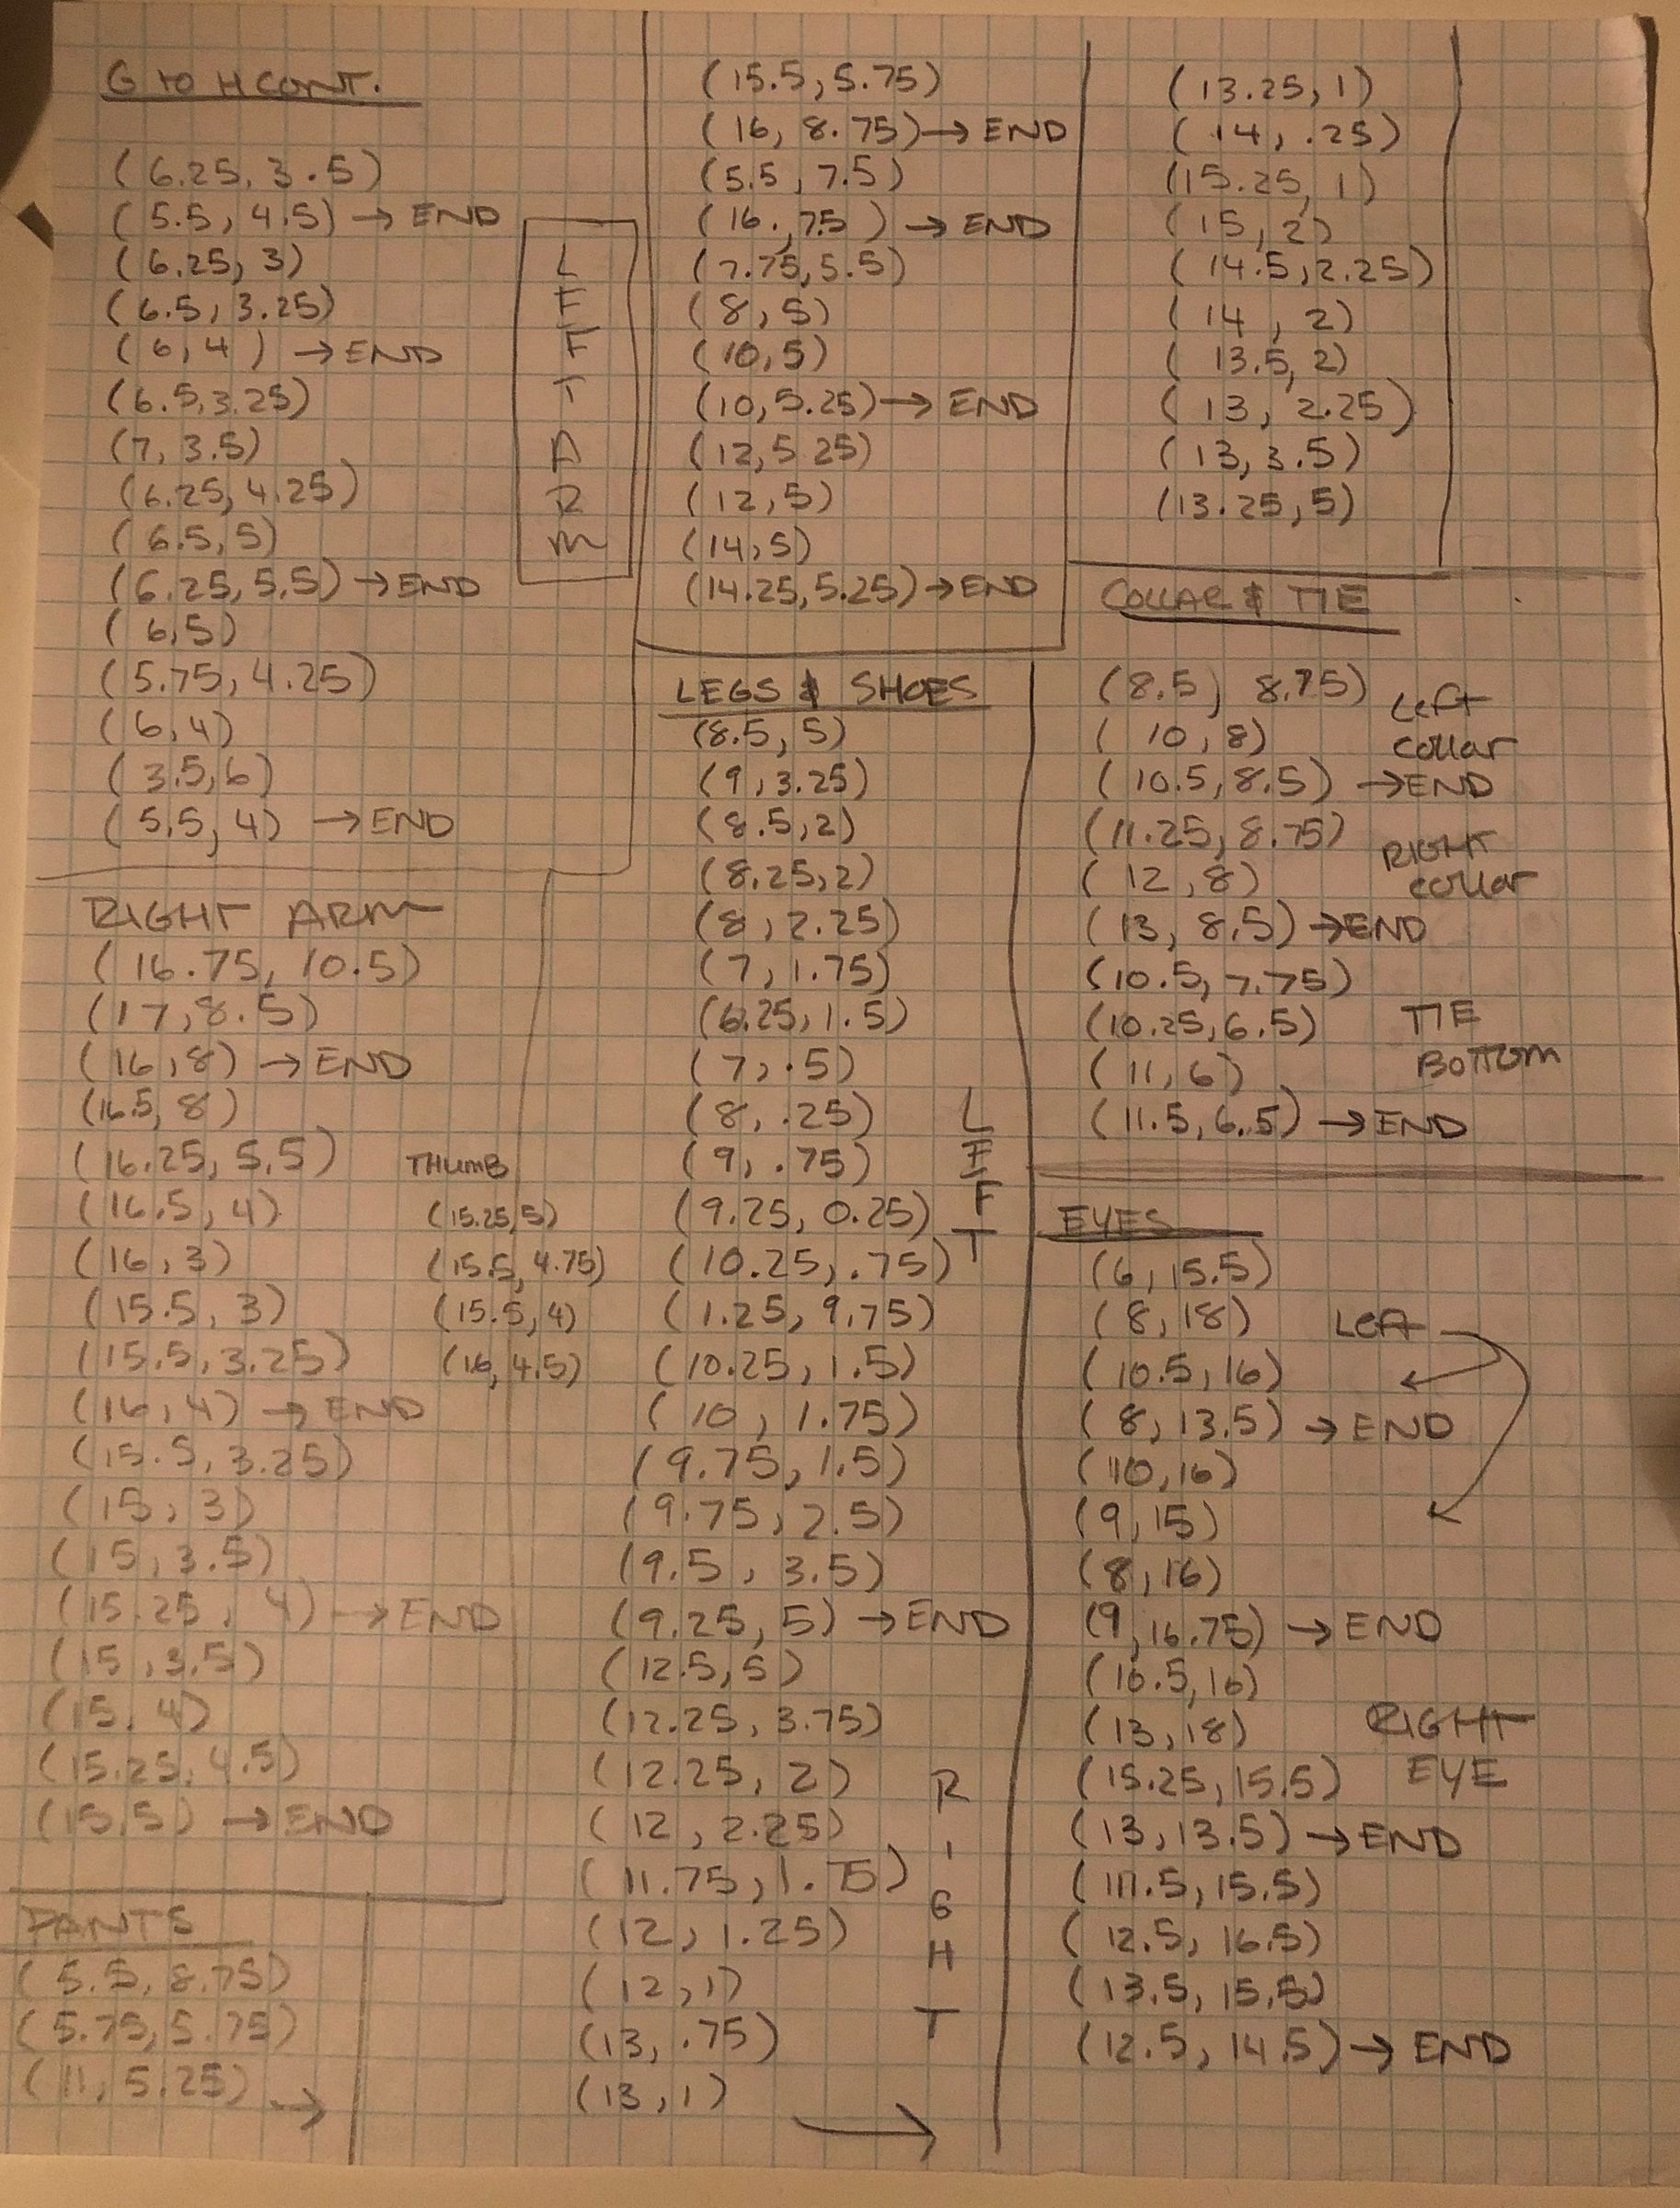 G TO H CONT.
(6.25, 3.5)
(5.5, 4.5) → END
(6.25, 3)
(6.5, 3.25)
(6, 4) → END
(6.5, 3.25)
(7, 3.5)
(6.25, 4.25)
(6.5, 5)
(6.25, 5.5) → END
(6, 5)
(5.75, 4.25)
(6, 4)
(3.5, 6)
(5.5, 4) → END
LEFT ARM
RIGHT ARM
(16.75, 10.5)
(17, 8.5)
(16, 8) → END
(16.5, 8)
(16.25, 5.5)
(16.5, 4)
(16, 3)
(15.5, 3)
(15.5, 3.25)
(16, 4) → END
(15.5, 3.25)
(15, 3)
(15, 3.5)
(15.25, 4) → END
(15, 3.5)
(15, 4)
(15.25, 4.5)
(15.5) → END
THUMB
(15.25, 5)
(15.5, 4.75)
(15.5, 4)
(16, 4.5)
PANTS
(5.5, 8.75)
(5.75, 5.75)
(11, 5.25) →
(15.5, 5.75)
(16, 8.75) → END
(5.5, 7.5)
(16., 7.5) → END
(7.75, 5.5)
(8, 5)
(10, 5)
(10, 5.25) → END
(12, 5 25)
(12, 5)
(14, 5)
(14.25, 5.25) → END
LEGS & SHOES
(8.5, 5)
(9, 3.25)
(8.5, 2)
(8.25, 2)
(8, 2.25)
(7, 1.75)
(6.25, 1.5)
(7, .5)
(8, .25)
(9, .75)
(9.25, 0.25)
(10.25, .75)
(1.25, 9.75)
(10.25, 1.5)
(10, 1.75)
(9.75, 1.5)
(9.75, 2.5)
(9.5, 3.5)
(9.25, 5) → END
LEFT
(12.5, 5)
(12.25, 3.75)
(12.25, 2)
(12, 2.25)
(11.75, 1.75)
(12, 1.25)
(12, 1)
(13, .75)
(13, 1) →
RIGHT
(13.25, 1)
(14, .25)
(15.25, 1)
(15, 2)
(14.5, 2.25)
(14, 2)
(13.5, 2)
(13, 2.25)
(13, 3.5)
(13.25, 5)
COLLAR & TIE
(8.5, 8.75) Left
(10, 8) collar
(10.5, 8.5) → END
(11.25, 8.75) RIGHT
(12, 8) collar
(13, 8.5) → END
(10.5, 7.75)
(10.25, 6.5) TIE
(11, 6) BOTTOM
(11.5, 6.5) → END
EYES
(6, 15.5)
(8, 18) Left
(10.5, 16)
(8, 13.5) → END
(10, 16)
(9, 15)
(8, 16)
(9, 16.75) → END
(10.5, 16)
(13, 18) RIGHT
(15.25, 15.5) EYE
(13, 13.5) → END
(11.5, 15.5)
(12.5, 16.5)
(13.5, 15.5)
(12.5, 14.5) → END